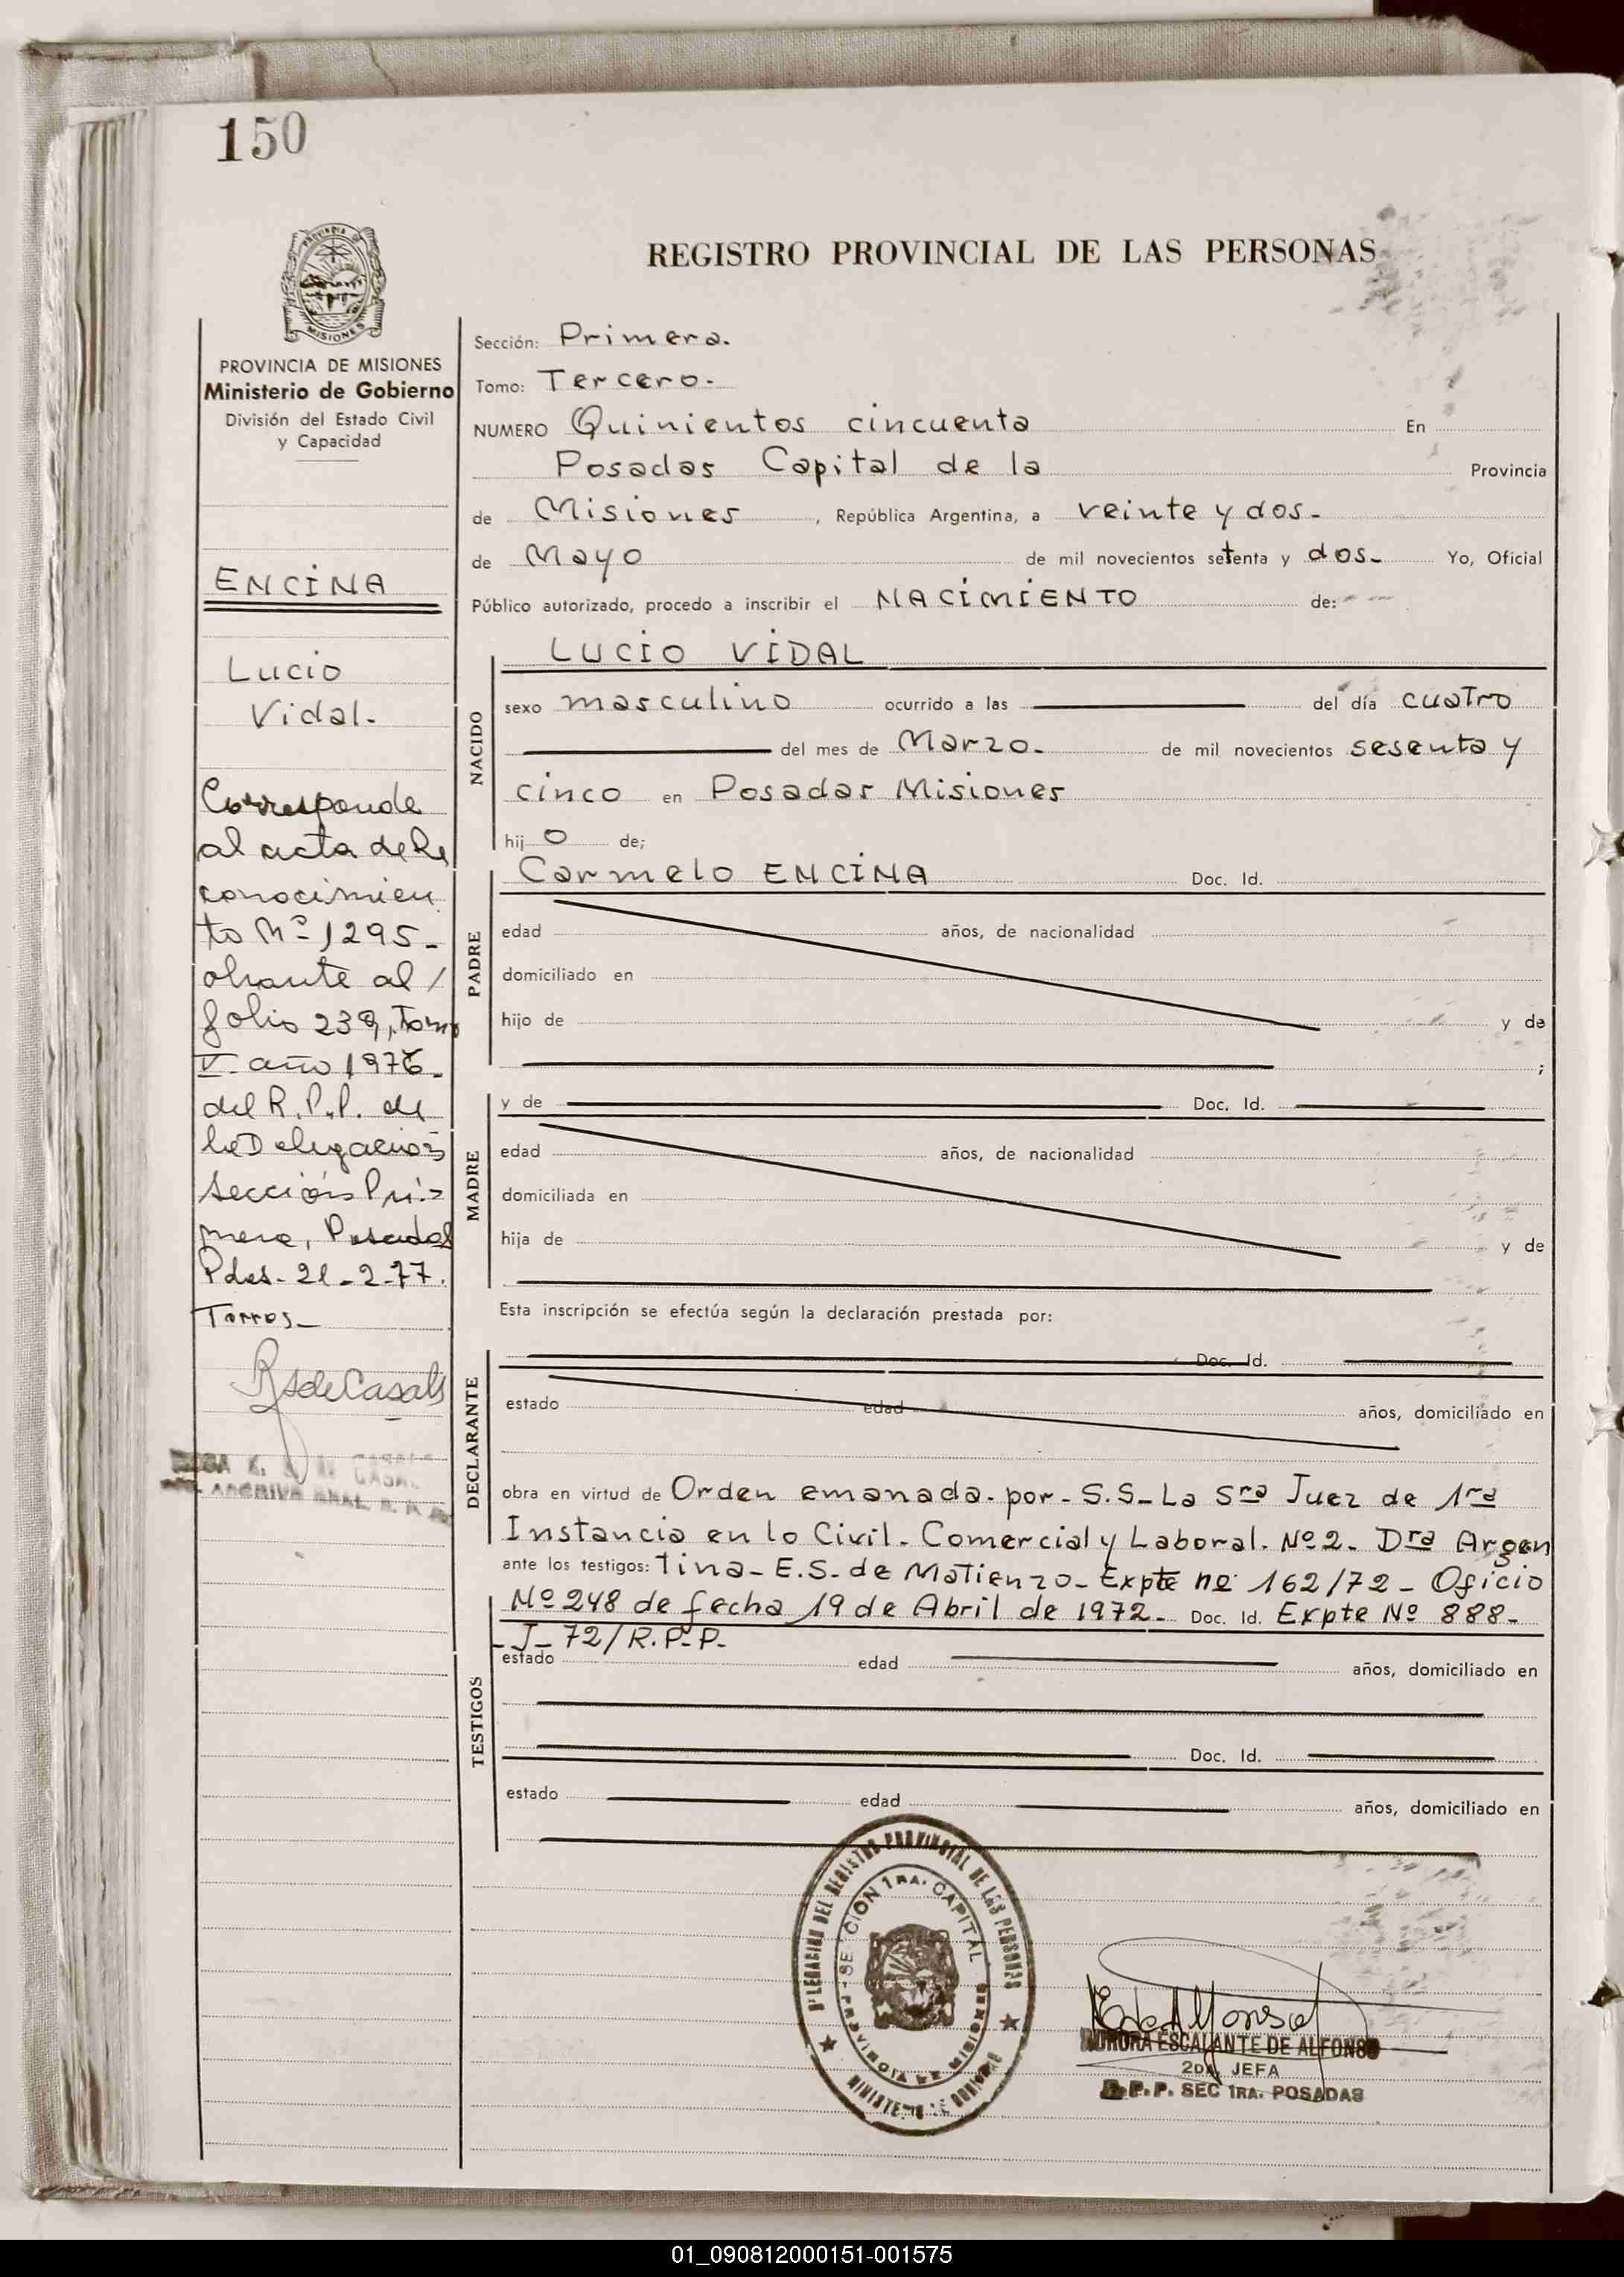 150
PROVINCIA
MISIONES
REGISTRO PROVINCIAL DE LAS PERSONAS
PROVINCIA DE MISIONES
Ministerio de Gobierno
División del Estado Civil
y Capacidad
ENCINA
Lucio
Vidal.
Corresponde
al acta de Re
conocimien
to Nº 1295-
obrante al /
folio 239, Tomo
V año 1976-
del R.P.P. de
la Delegación
Sección Pri-
mera, Posadas
Pdas- 21-2-77.
Torres-
RSdeCasals
Sección: Primera.
Tomo: Tercero.
NUMERO Quinientos cincuenta En
Posadas Capital de la Provincia
de Misiones, República Argentina, a veinte y dos-
de Mayo de mil novecientos setenta y dos- Yo, Oficial
Público autorizado, procedo a inscribir el NACIMIENTO de:
LUCIO VIDAL
NACIDO
sexo masculino ocurrido a las del día cuatro
del mes de Marzo- de mil novecientos sesenta y
cinco en Posadas Misiones
hij o de;
PADRE
Carmelo ENCINA Doc. Id.
edad años, de nacionalidad
domiciliado en
hijo de y de
;
MADRE
y de Doc. Id.
edad años, de nacionalidad
domiciliada en
hija de y de
Esta inscripción se efectúa según la declaración prestada por:
DECLARANTE
Doc. Id.
estado edad años, domiciliado en
obra en virtud de Orden emanada. por- S.S- La Sra Juez de 1ra
Instancia en lo Civil- Comercial y Laboral. Nº 2- Dra Argen
ante los testigos: tina- E.S- de Matienzo- Expte nº 162/72- Oficio
Nº 248 de fecha 19 de Abril de 1972- Doc. Id. Expte Nº 888-
-J- 72/R.P-P-
TESTIGOS
estado edad años, domiciliado en
Doc. Id.
estado edad años, domiciliado en
DELEGACION DEL REGISTRO PROVINCIAL DE LAS PERSONAS
SECCION 1RA. CAPITAL
PROVINCIA DE MISIONES
MINISTERIO DE GOBIERNO
AURORA ESCALANTE DE ALFONSO
2DA JEFA
R.P.P. SEC 1RA. POSADAS
01_090812000151-001575